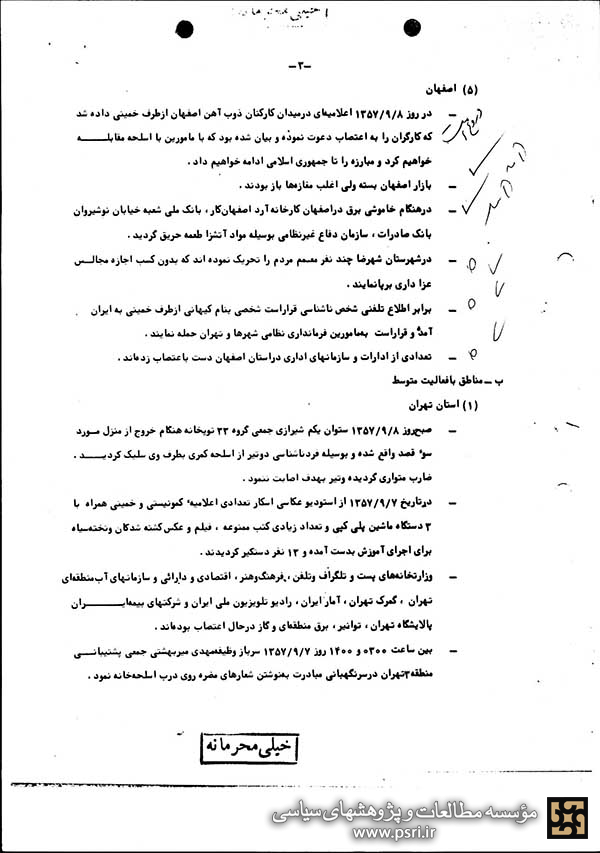 -۳-
(۵) اصفهان
- در روز ۱۳۵۷/۹/۸ اعلامیه‌ای درمیدان کارکنان ذوب آهن اصفهان ازطرف خمینی داده شد
که کارگران را به اعتصاب دعوت نموده و بیان شده بود که با مامورین با اسلحه مقابلـــه
خواهیم کرد و مبارزه را تا جمهوری اسلامی ادامه خواهیم داد .
- بازار اصفهان بسته ولی اغلب مغازه‌ها باز بودند .
- درهنگام خاموشی برق دراصفهان کارخانه آرد اصفهان‌کار ، بانک ملی شعبه خیابان نوشیروان
بانک صادرات ، سازمان دفاع غیرنظامی بوسیله مواد آتشزا طعمه حریق گردید .
- درشهرستان شهرضا چند نفر معمم مردم را تحریک نموده اند که بدون کسب اجازه مجالـس
عزا داری برپانمایند .
- برابر اطلاع تلفنی شخص ناشناسی قراراست شخصی بنام کیهانی ازطرف خمینی به ایران
آمده و قراراست به‌مامورین فرمانداری نظامی شهرها و تهران حمله نمایند .
- تعدادی از ادارات و سازمانهای اداری دراستان اصفهان دست باعتصاب زده‌اند .
ب - مناطق بافعالیت متوسط
(۱) استان تهران
- صبح‌روز ۱۳۵۷/۹/۸ ستوان یکم شیرازی جمعی گروه ۳۳ توپخانه هنگام خروج از منزل مـورد
سوء قصد واقع شده و بوسیله فردناشناسی دوتیر از اسلحه کمری بطرف وی سلیک گردیـــد .
ضارب متواری گردیده وتیر بهدف اصابت ننمود .
- درتاریخ ۱۳۵۷/۹/۷ از استودیو عکاسی اسکار تعدادی اعلامیه کمونیستی و خمینی همراه با
۳ دستگاه ماشین پلی کپی و تعداد زیادی کتب ممنوعه ، فیلم و عکس کشته شدگان وتخته‌سیاه
برای اجرای آموزش بدست آمده و ۱۳ نفر دستگیر گردیدند .
- وزارتخانه‌های پست و تلگراف وتلفن ، فرهنگ‌وهنر ، اقتصادی و دارائی و سازمانهای آب‌منطقه‌ای
تهران ، گمرک تهران ، آمار ایران ، رادیو تلویزیون ملی ایران و شرکتهای بیمه‌ایـــران
پالایشگاه تهران ، توانیر ، برق منطقه‌ای و گاز درحال اعتصاب بوده‌اند .
- بین ساعت ۰۳۰۰ و ۱۴۰۰ روز ۱۳۵۷/۹/۷ سرباز وظیفه‌مهدی میربهشتی جمعی پشتیبانـــی
منطقه۳تهران درسرنگهبانی مبادرت به‌نوشتن شعارهای مضره روی درب اسلحه‌خانه نمود .
خیلی محرمانه
مؤسسه مطالعات و پژوهشهای سیاسی
www.psri.ir